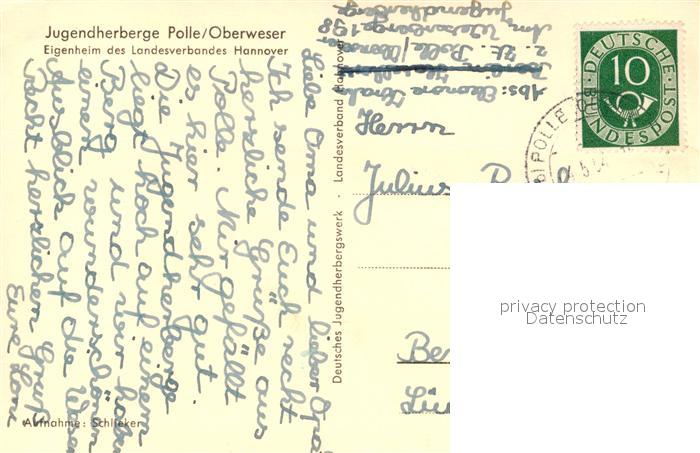 Jugendherberge Polle/Oberweser
Eigenheim des Landesverbandes Hannover
Liebe Oma und lieber Opa!
Ich sende Euch recht
herzliche Grüße aus
Polle. Mir gefällt
es hier sehr gut.
Die Jugendherberge
liegt hoch auf einem
Berg und wir haben
einen wunderschönen
Ausblick auf die Weser.
Recht herzlichen Gruß
Eure
Aufnahme: Schlieker
Deutsches Jugendherbergswerk · Landesverband Hannover
Abs: Eleonore
z. Zt. Polle/
Am
Jugendherberge
Herrn
Julius
Be
Lün
DEUTSCHE BUNDESPOST
10
POLLE
privacy protection
Datenschutz